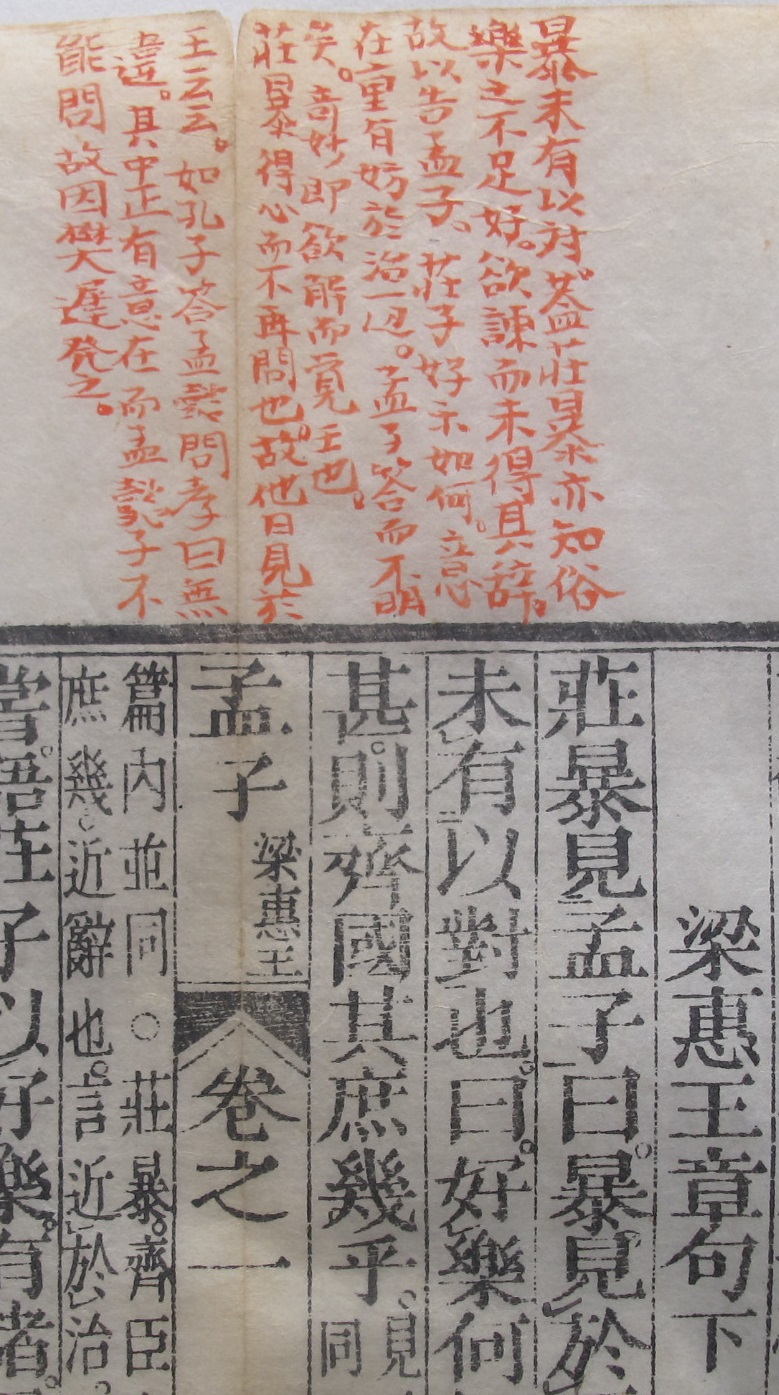 暴未有以対。蓋莊暴亦知俗
樂之不足好。欲諌而未得其辞。
故以告孟子。莊子好示如何。立忌
在重有妨於治一辺。孟子答而不明
矣。奇妙即欲解而覓王也。
莊暴得心而不再問也。故他日見於
王云云。如孔子答孟懿問孝曰無
違。其中正有意在而孟懿子不
能問故因樊遲発之。
梁惠王章句下
莊暴見孟子曰。暴見於
未有以對也。曰。好樂何
甚。則齊國其庶幾乎。見
同
孟子
梁惠王
卷之一
篇內並同○莊暴。齊臣
庶幾。近辭也。言近於治。
嘗語莊子以好樂。有者。